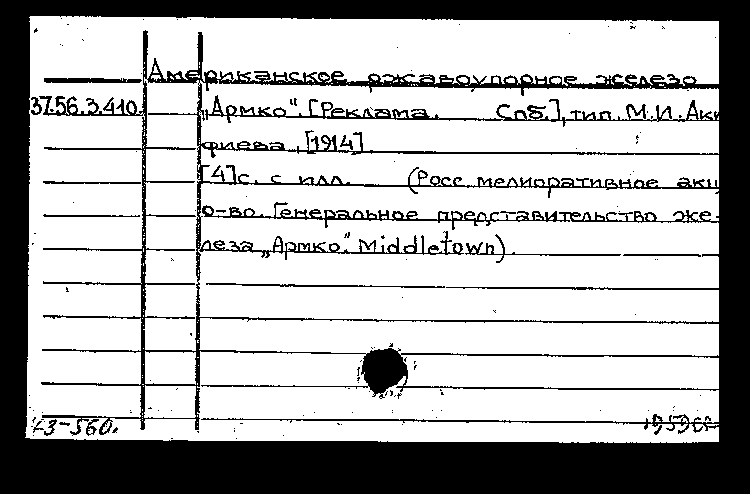 Американское ржавоупорное железо
37.56.3.410. „Армко". [Реклама. Спб.], тип. М.И. Аки
фиева, [1914]
[4]с. с илл. (Росс. мелиоративное акц
о-во. Генеральное представительство же-
леза „Армко". Middletown).
43-560.